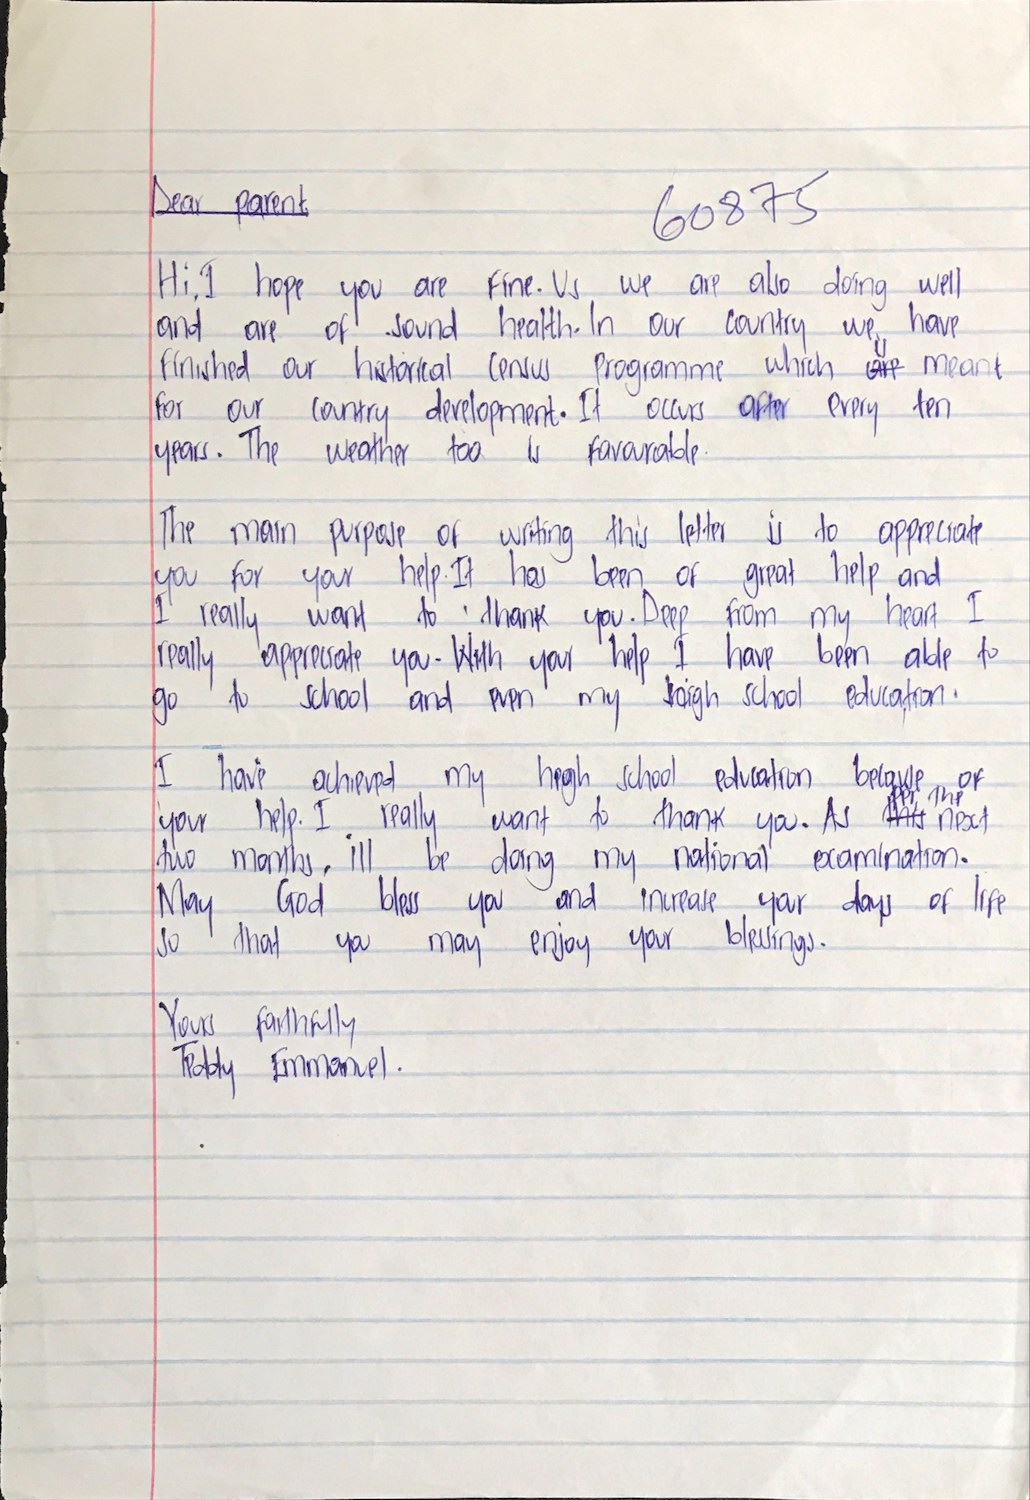 Dear parent
60875
Hi, I hope you are fine. Us we are also doing well
and are of sound health. In our country we have
finished our historical census programme which is meant
for our country development. It occurs after every ten
years. The weather too is favourable.
The main purpose of writing this letter is to appreciate
you for your help. It has been of great help and
I really want to thank you. Deep from my heart I
really appreciate you. With your help I have been able to
go to school and even my high school education.
I have achieved my hegh school education because of
your help. I really want to thank you. As per the next
two months, ill be doing my national examination.
May God bless you and increase your days of life
so that you may enjoy your blessings.
Yours faithfully
Teddy Emmanuel.